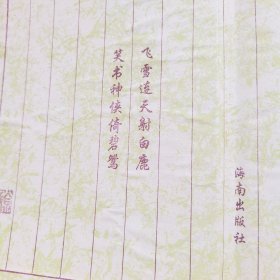 飞雪连天射白鹿
笑书神侠倚碧鸳
海南出版社